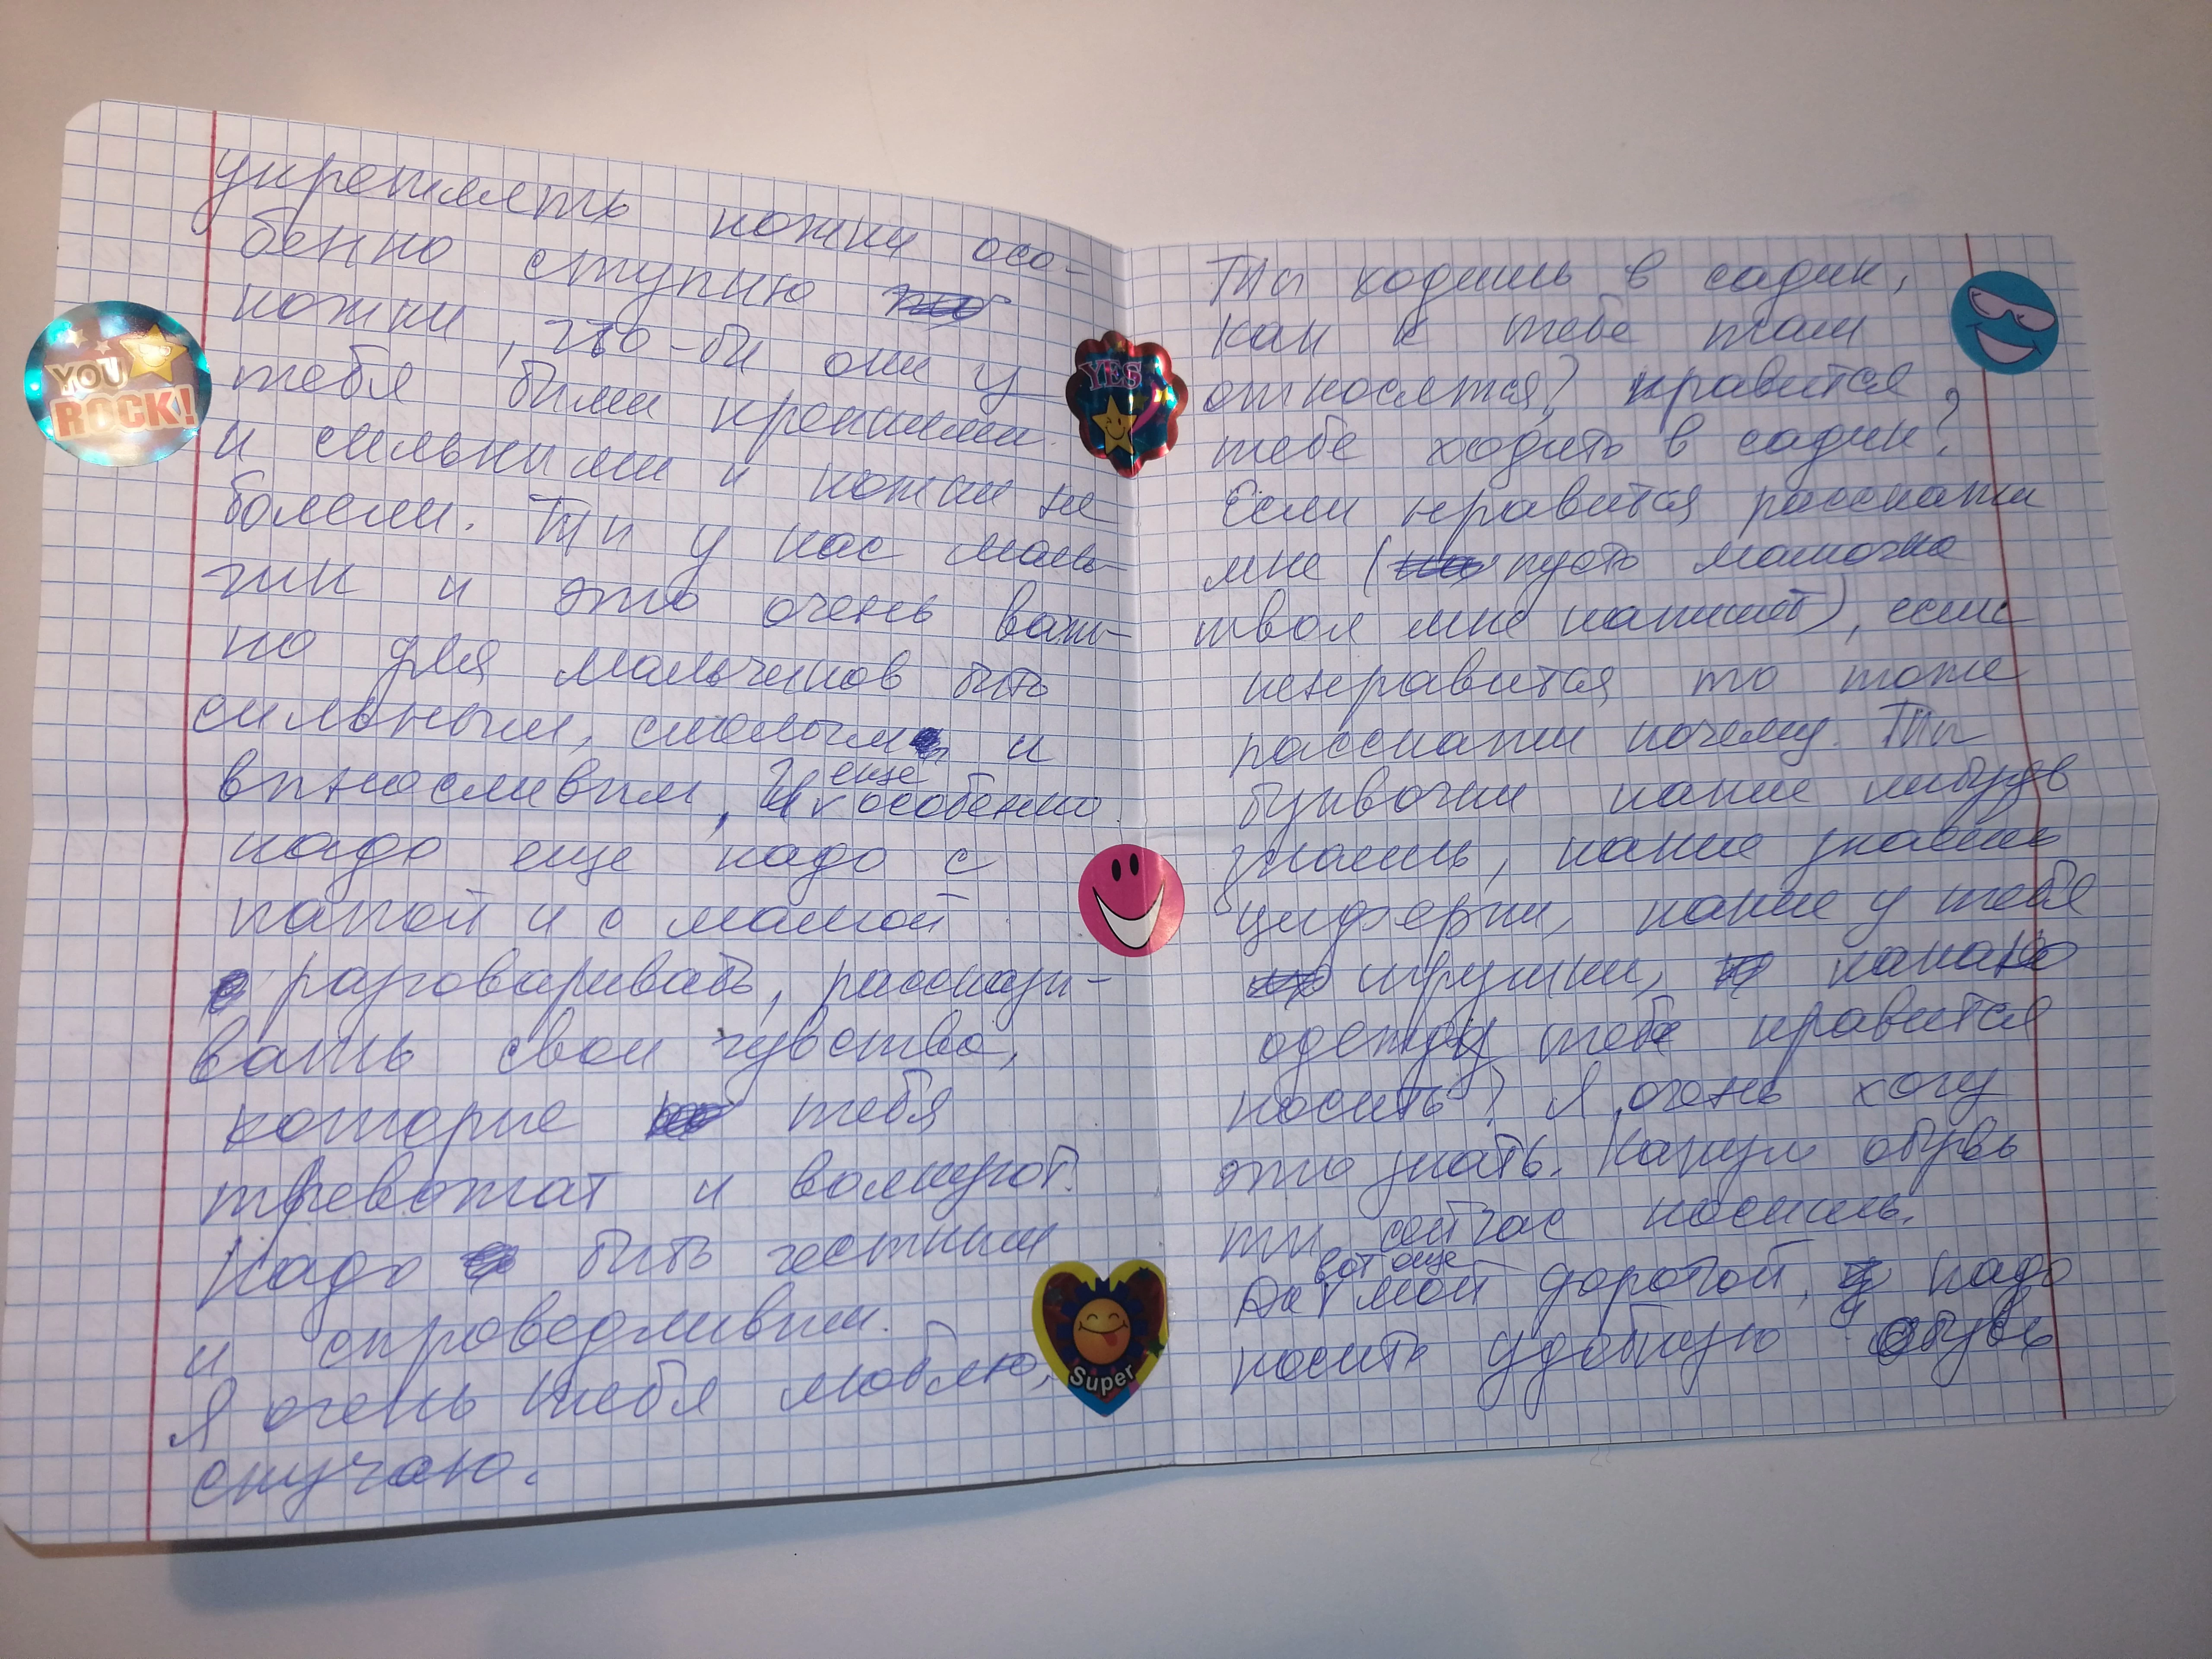 укреплять ножки осо-
бенно ступню
ножки, что-бы они у
тебя были крепкими
и сильными и ножки не
болели. Ты у нас маль-
чик и это очень важ-
но для мальчиков быть
сильным, смелым и
еще
выносливым, И особенно
надо еще надо с
папой и с мамой
разговаривать, рассказы-
вать свои чувства,
которые тебя
тревожат и волнуют.
Надо быть честным
и справедливым.
Я очень тебя люблю,
скучаю.
YOU
ROCK!
YES
Super
Ты ходишь в садик,
как к тебе там
относятся? нравится
тебе ходить в садик?
Если нравится расскажи
мне ( пусть мамочка
твоя мне напишет), если
ненравится то тоже
расскажи почему. Ты
буквочки какие нибудь
знаешь, какие знаешь
циферки, какие у тебя
игрушки, какаю
одежду тебе нравится
носить? Я очень хочу
это знать. Какую обувь
ты сейчас носишь.
вот еще
Да мой дорогой, надо
носить удобную обувь